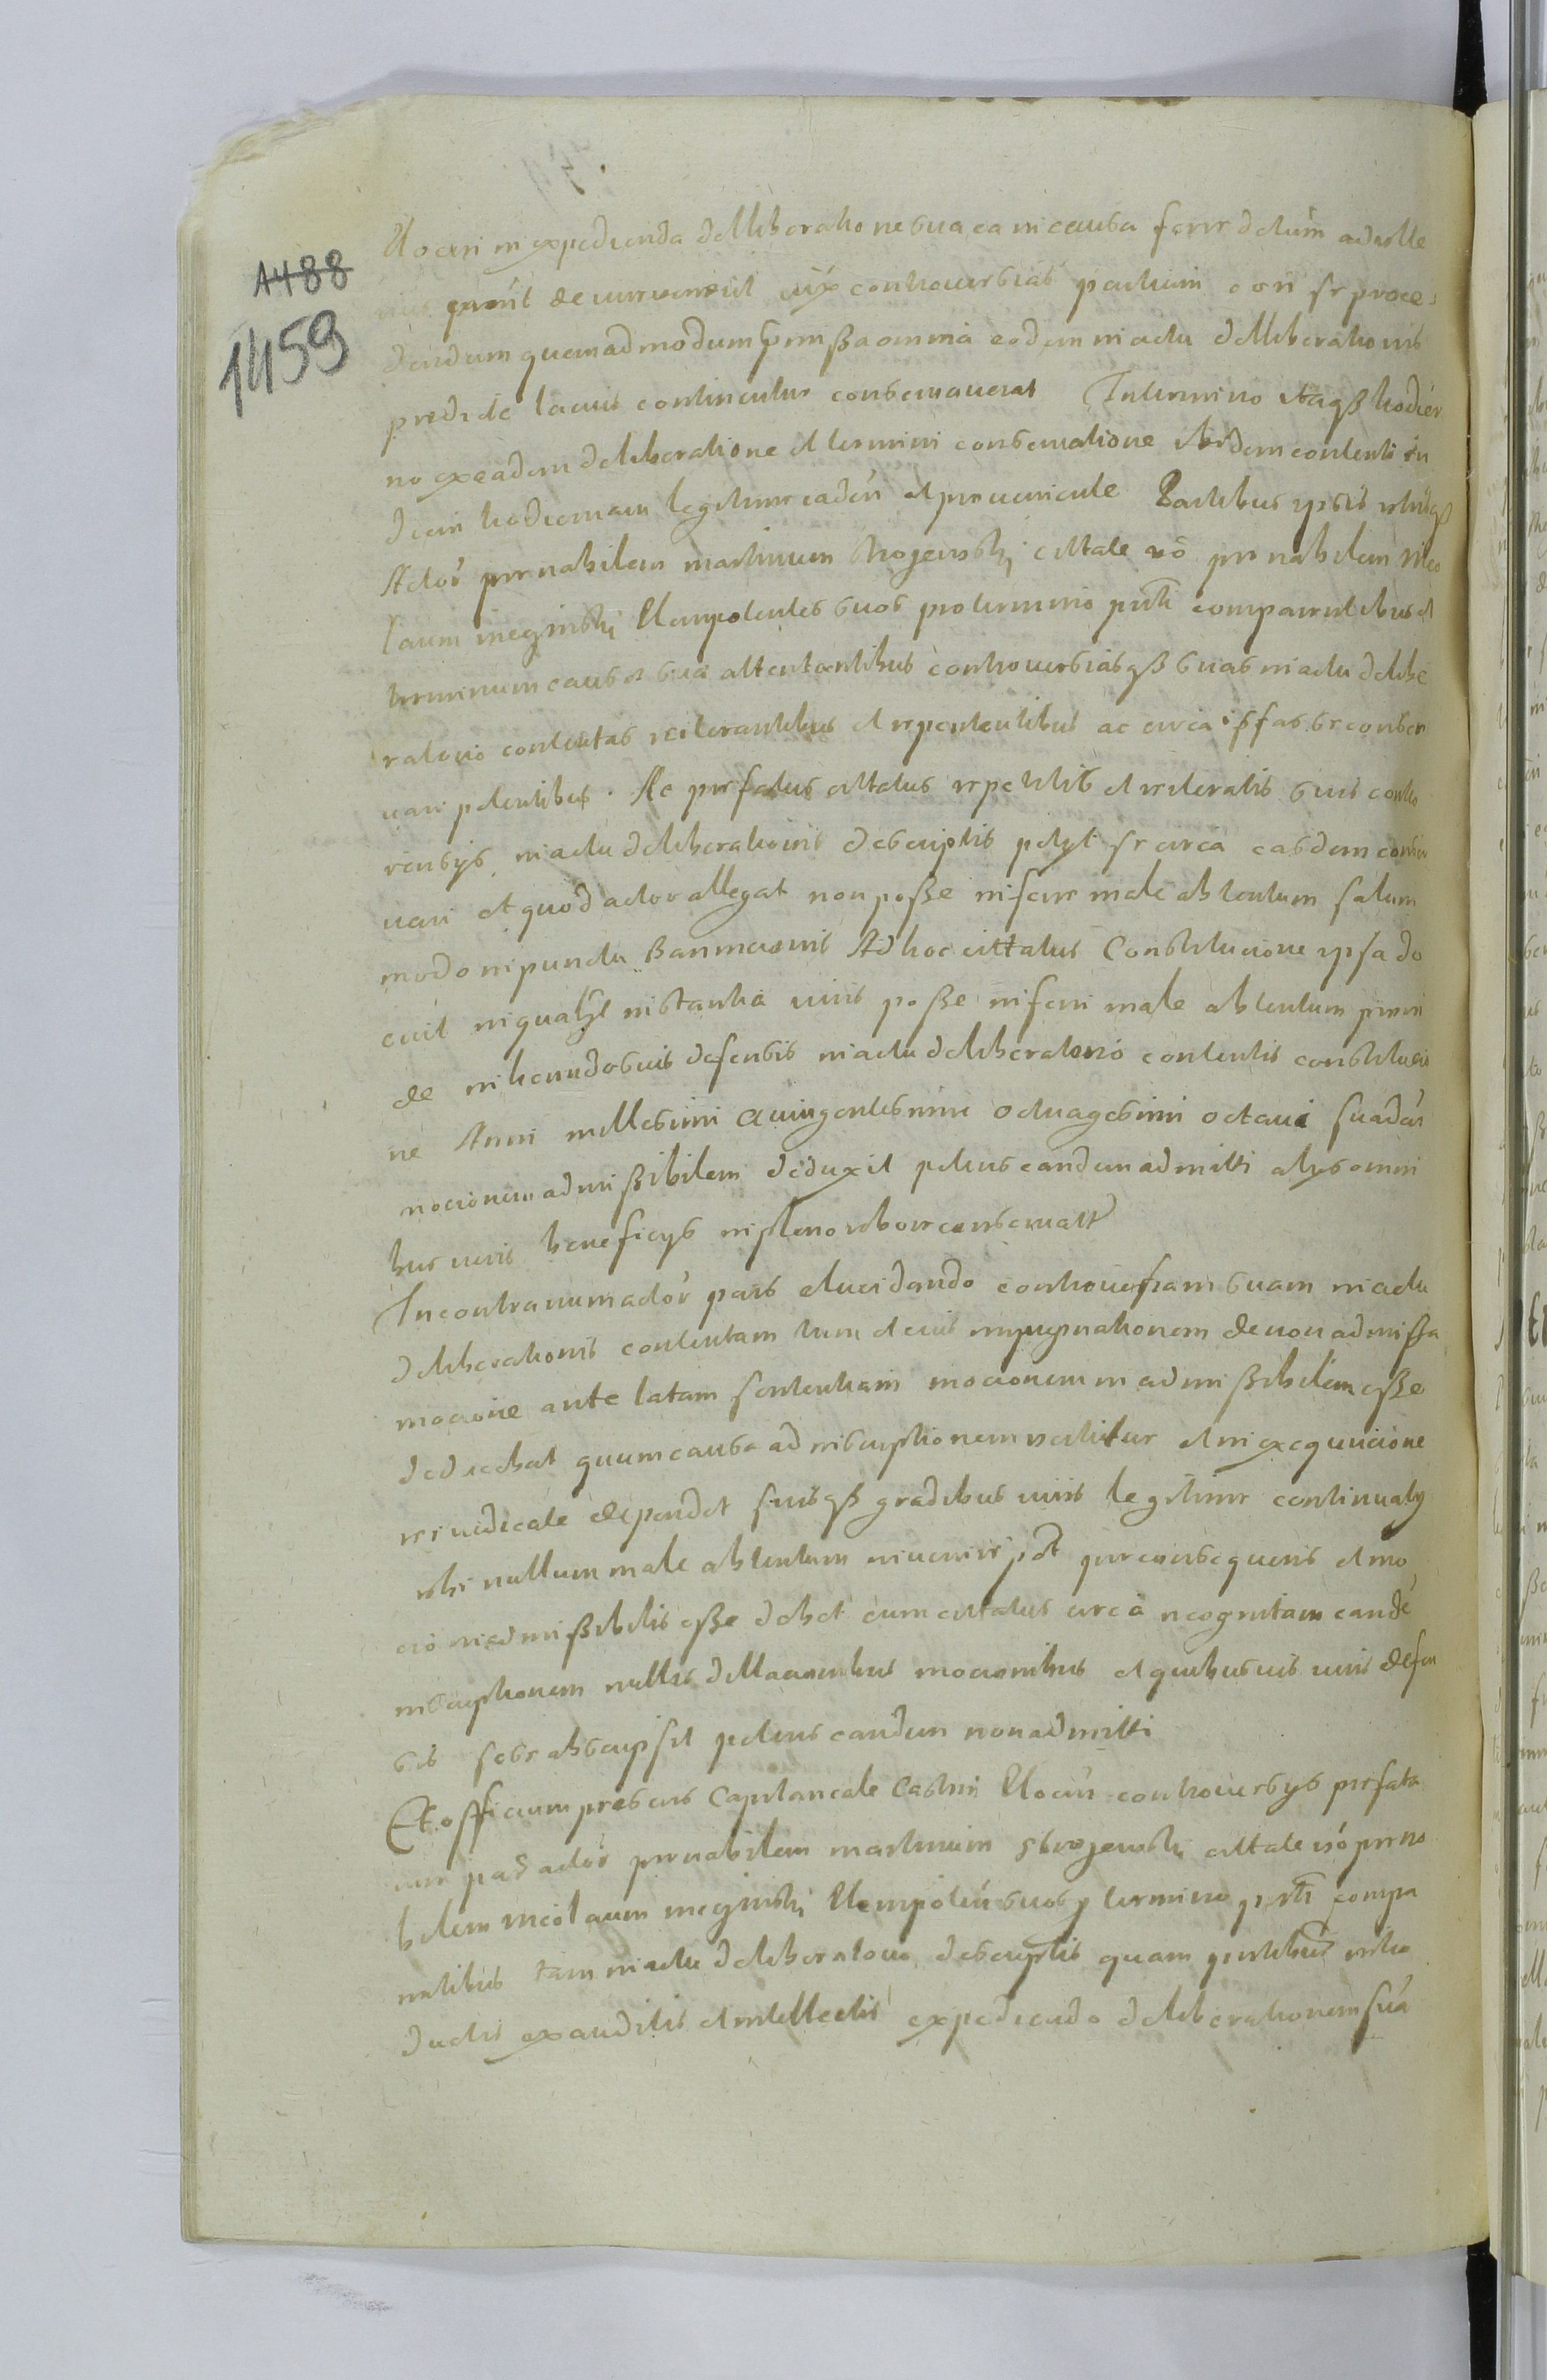 1488
1459
Plocen in expedienda deliberatione sua ea in causa ferre decretum advolle
prout de iure venerit iux controversias partium cori se proce
dendum quemadmodum premissa omnia eodem in actu deliberationis
predicte lacius continentur conservaverat In termino itaqß hodier
no ex eadem deliberatione et termini conservatione ibidem contenti in
diem hodiernam legitime caden et proveniente Partibus ipsis utrisqß
Actor per nobilem Martinum citate vo per nobilem Nico
laum Plenipotentes suos pro termino pnti comparentibus et
terminum causae suae attentantibus controversiasqß suas in actu delibe
ratorio contentas reiterantibus et repetentibus ac circa ipsas se conser
vari petentibus. Ac prefatus citatus repetitis et reiteratis suis contro
versys in actu deliberationis descriptis petyt se circa easdem conser
vari et quod actor allegat non posse inferre male obtentum salum
modo in puncta Bannicionis Ad hoc citatus Constitucione ipsa do
cuit in qualibet instantia iuris posse inferri male obtentum proin
de inherendo suis defensis in actu deliberatorio contentis constitucio
ne Anni millesimi Quingentesimi octuagesimi octavi suaden
mocionem admissibilem deduxit petens eandem admitti alys omni
bus iuris beneficys in pleno robore conservatis
In contrarium actor pars elucidando controversiam suam in actu
deliberationis contentam tum et eius impugnationem de non admissa
mocione ante latam sententiam mocionem inadmissibilem esse
deducebat quum causa ad inscriptionem vertitur et in exequucione
rei iudicate dependet suisqß gradibus iuris legitime continuatis
ubi nullum male obtentum invenire pot per consequens et mo
cio inadmissibilis esse debet cum citatus circa recognitam eande
inscriptionem nullis dillacionibus mocionibus et quibusvis iuris defen
sis sese abscripsit petens eandem non admitti
Et officium presens Capitaneale Castren Plocen controversys prefata
rum par actor per nobilem Martinum citate vo per no
bilem Nicolaum Plenipoten suos p termino pnti compa
rentibus tam in actu deliberatorio descriptis quam pntibus intro
ductis exauditis et intellectis expediendo deliberationem sua